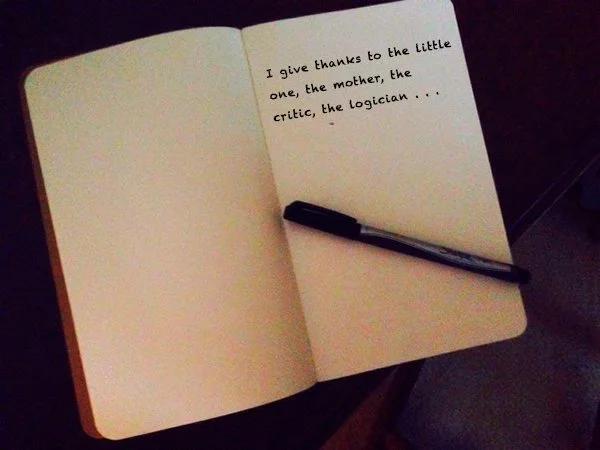 I give thanks to the little
one, the mother, the
critic, the logician . . .